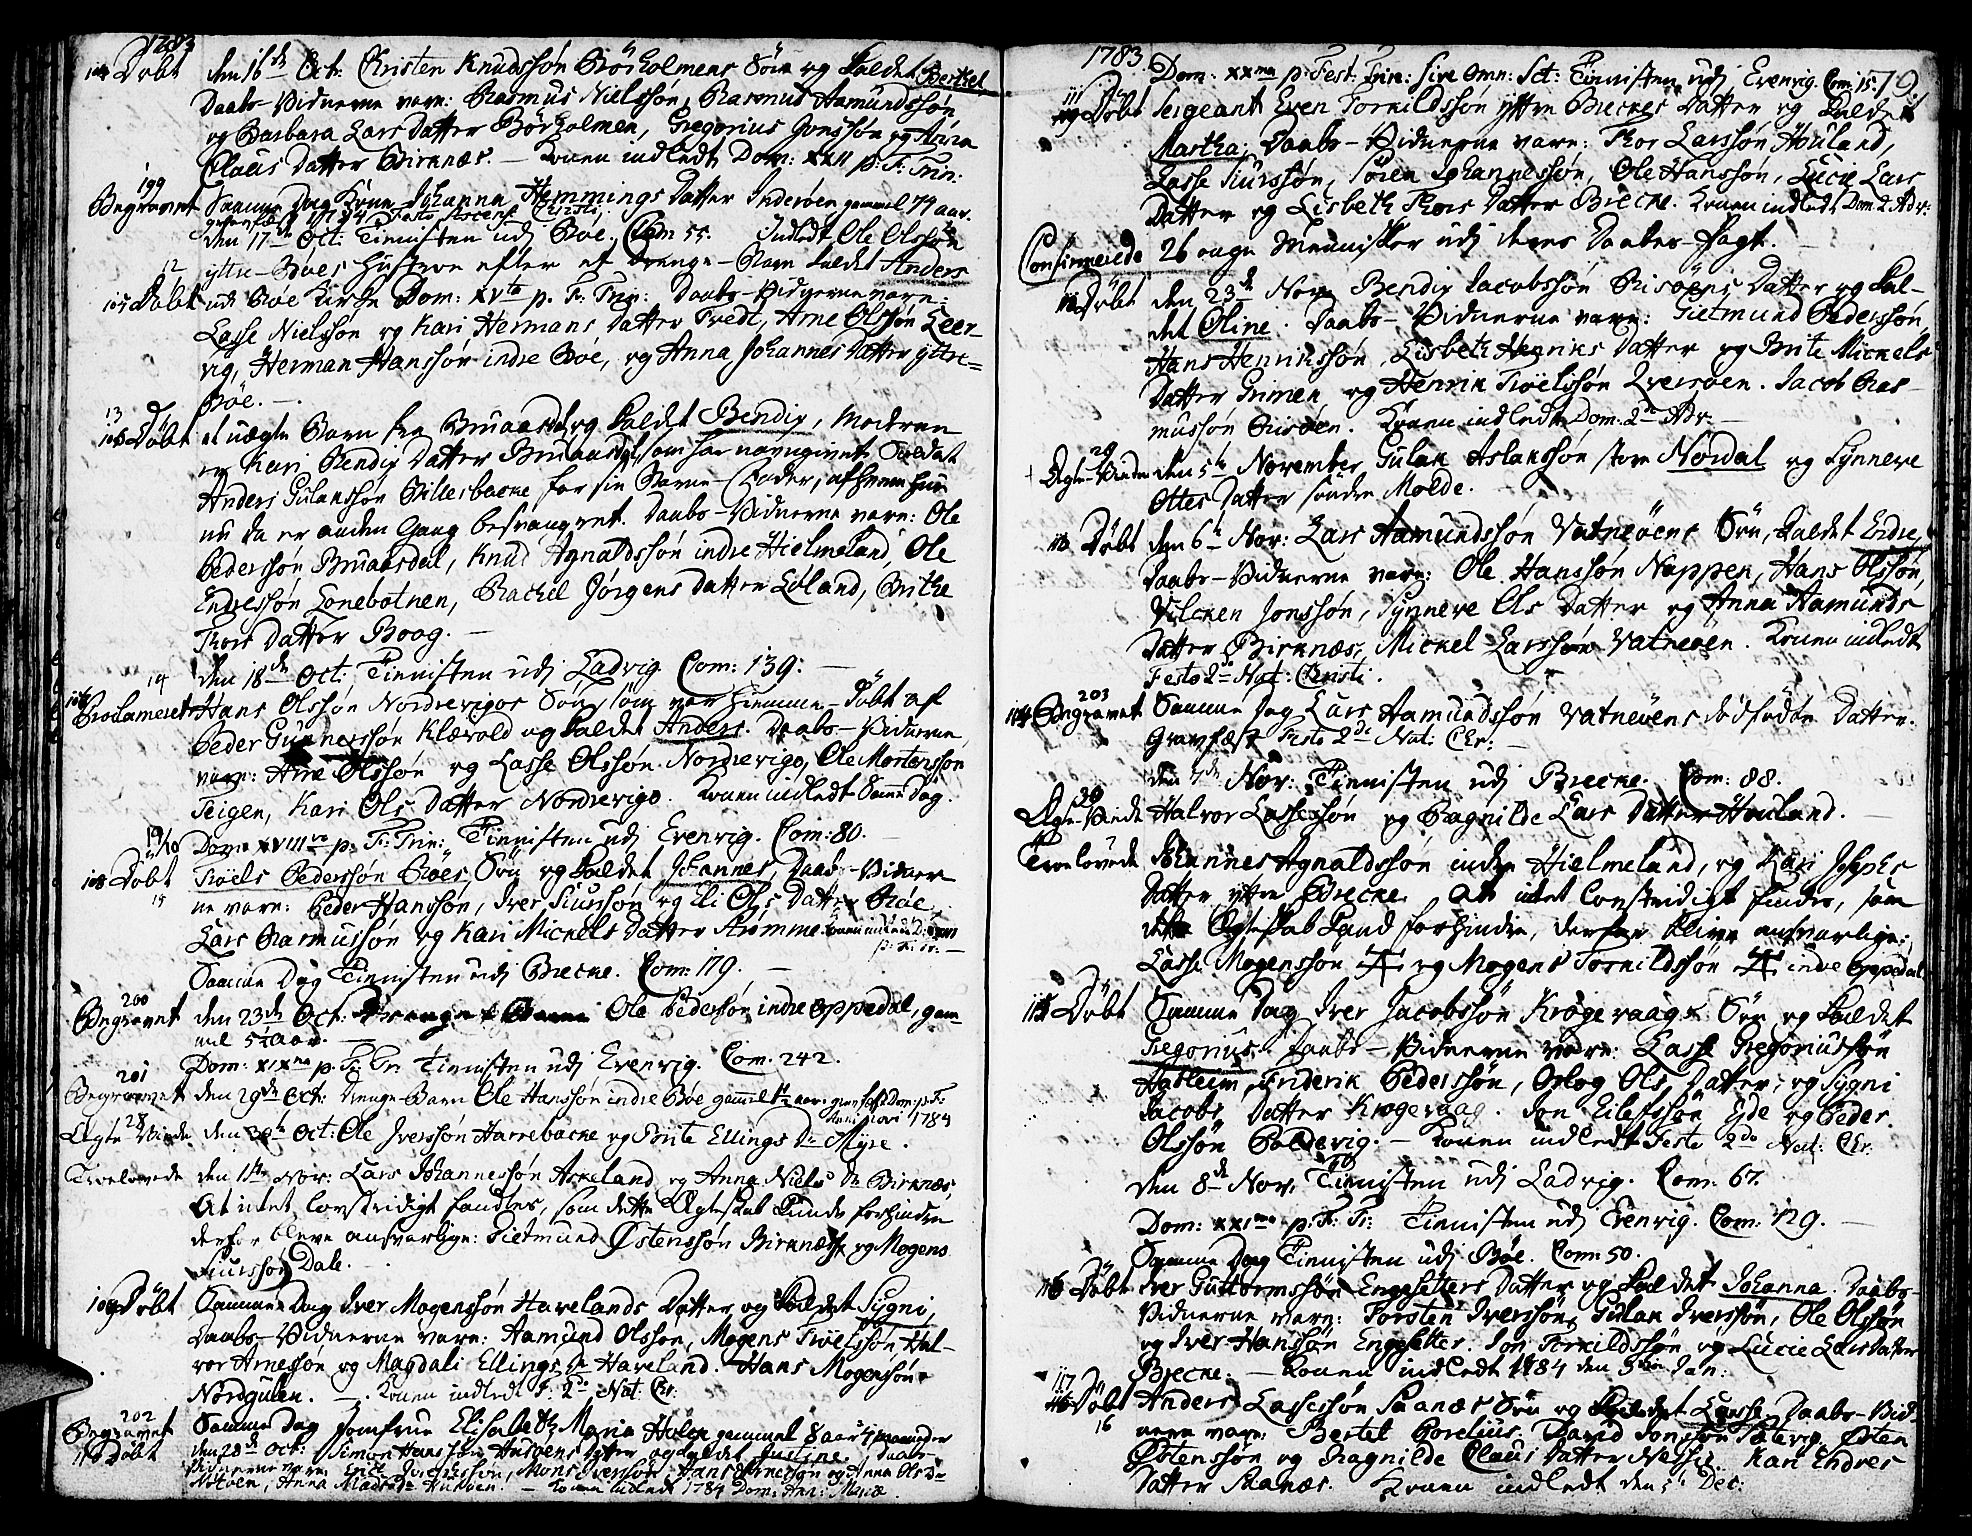 1783
104 Döbt den 16de Oct: Christen Knudssön Börholmens Sön og kaldet Berthel
Daabs-Vidnerne vare: Rasmus Nielssön, Rasmus Aamundssön
og Barbara Lars Datter Börholmen, Gregorius Jonssön og Anna
Claus Datter Birknæs. – Konen indledt Dom: XXII p: F: Trin:
199
Begravet Samme Dag Kone Johanna Hemmings Datter Inderöen gammel 79 aar.
1784 Festo Ascens: Christi
den 17de Oct: Tienisten udj Böe. Com 55. Indledt Ole Olssön
12
yttre-Böes Hustroe efter et Drenge-Barn kaldet Anders
105 Döbt udi Böe Kirke Dom: XVta p. F: Trin: Daabs-Vidnerne vare:
Lasse Nielssön og Kari Hermans Datter Tredt, Arne Olssön Leer-
vig, Herman Hanssön indre Böe, og Anna Johannes Datter yttre-
Böe. –
13
106 Döbt et uægte Barn fra Bruaasdal og kaldet Bendix, Moderen
er Kari Bendix Datter Bruaasdal, som har navngivet Soldat
Anders Gulanssön Billesbacke for sin Barne-Fader, af hvem hun
nu da er anden Gang besvangret. Daabs-Vidnerne vare: Ole
Pederssön Bruaasdal, Knud Agnaldssön indre Hielmeland, Ole
Endressön Lonebotnen, Rachel Jörgens Datter Löland, Brithe
Thors Datter Boog. –
den 18de Oct: Tienisten udj Ladvig Com: 139: –
14
Proclameret Hans Olssön Nordrevigos Sön, som var hiemme-Döbt af
Peder Gunnerssön Klævold og kaldet Anders. Daabs-Vidnerne
vare: Arne Olssön og Lasse Olssön Nordrevigo, Ole Mortenssön
Teigen, Kari Ols Datter Nordrevigo. Konen indledt Samme Dag.
19/10 Dom: XVIIIva p: F: Trin: Tienisten udj Evenvig. Com: 80. –
108 Döbt Troels Pederssön Böes Sön og kaldet Johannes, Daabs-Vidner-
15
ne vare: Peder Hanssön, Iver Siurssön og Eli Ols Datter Böe,
Lars Rasmussön og Kari Mickels Datter Römme.
Samme Dag Tienisten udj Brecke. Com: 179. –
200
Begravet den 23de Oct: Ole Pederssön indre Oppedal, gam-
mel 5½ aar. –
Dom: XIXna p: F: Tr: Tienisten udj Evenvig. Com: 242.
201
Begravet den 29de Oct: Drenge-Barn Ole Hanssön indre Böe gammel
28
Ægte-Viede den 30te Oct: Ole Iverssön Harrebacke og Brite Ellings Dr Myre.
Troelovede den 1ste Nov: Lars Johannessön Askeland og Anna Niels Dr Birknæs,
At intet lovstridigt fandtes, som dette Ægteskab kunde forhindre
derfor bleve ansvarlige: Gietmund Östenssön Birknæs og Mogens
Siurssön Dale.
109 Döbt Samme Dag Iver Mogenssön Havelands Datter og kaldet Sygni,
Daabs-Vidnerne vare: Aamund Olssön, Mogens Troelssön Hal-
vor Arnessön og Magdali Ellings Dr Haveland. Hans Mogenssön
Nordgulen. – Konen indledt F: 2do Nat: Chr:
202
Begravet Samme Dag Jomfrue Elisabeth Maria Holm gammel 8 aar 4 maaneder
110 Döbt den 28de Oct: Simon Hanssön Husöens Datter og kaldet Justine. Daabs-
Vidnerne vare: Mons Iverssön, Hans Arnessön og Anna Ols Dr
Anna Mads Dr Husöen. – Konen indledt 1784 Dom: Ann: Mariæ.
1783 79.
Dom: XXma p: Fest: Trin: sive Omn: Sct: Tienisten udj Evenvig. Com: 15.
111 Döbt Sergeant Even Torkildssön yttre Breckes Datter og kaldet
Martha; Daabs-Vidnerne vare: Thor Larssön Houland,
Lasse Siurssön, Sören Johannessön, Ole Hanssön, Lucie Lars
Datter og Lisbeth Thors Datter Brecke. Konen indledt Dom 2 Adv:
Confirmerede 26 unge Mennisker udj deres Daabes-Pagt.
112 Döbt den 23de Nov: Bendix Jacobssön Risöens Datter og kal-
det Oline. Daabs-Vidnerne vare: Gietmund Pederssön,
Hans Henrikssön, Lisbeth Henriks Datter og Brite Mickels
Datter Grimen, og Henrik Troelssön Qversöen. Jacob Ras-
mussön Risöen. Konen indledt Dom: 2da Adv: –
29
Ægte-Viede den 5te November Gulak Aslakssön store Nordal og Synneve
Ottes Datter söndre Molde.
113 Döbt den 6te Nov: Lars Aamundssön Vatneöens Sön, kaldet Endre,
Daabs-Vidnerne vare: Ole Hanssön Nappen, Hans Olssön,
Vilcken Jonssön, Synneve Ols Datter og Anna Aamunds
Datter Birknæs, Mickel Larssön Vatneöen. Konen indledt
Festo 2do Nat: Christi.
203
114 Begravet Samme Dag Lars Aamundssön Vatneöens dödfödte Datter.
Gravfæst Festo 2do Nat: Chr: –
den 7de Nov: Tienisten udj Brecke. Com: 88.
30
Ægte-Viede Halvor Lassessön og Ragnilde Lars Datter Houland. –
Troelovede Johannes Agnaldssön indre Hielmeland, og Kari Josephs
Datter yttre Brecke. At intet lovstridigt findes, som
dette Ægteskab kand forhindre, derfor blive ansvarlige:
Lasse Mogenssön og Mogens Torkildssön indre Oppedal
115 Döbt Samme Dag Iver Jacobssön Krogevaags Sön og kaldet
Gregorius. Daabs-Vidnerne vare: Lasse Gregoriussön
Hatleim, Friderik Pederssön, Oslog Ols Datter, og Sygni
Jacobs Datter Krogevaag. Jon Eilefssön Eide og Peder
Olssön Boldevig. – Konen indledt Festo 2do Nat: Chr:
den 8de Nov: Tienisten udj Ladvig. Com: 67.
Dom: XXIma p: F: Tr: Tienisten udj Evenvig. Com: 129. –
Samme Dag Tienisten udj Böe. Com: 50.
116 Döbt Iver Guttormssön Engesetters Datter og kaldet Johanna. Daabs-
Vidnerne vare: Torsten Iverssön, Gulak Iverssön, Ole Olssön
og Iver Hanssön Engesetter. Jon Torkildssön og Lucie Lars Datter
Brecke. – Konen indledt 1784 den 3die Jan:
117
Döbt Anders Lassessön Saanæs Sön og kaldet Lasse, Daabs-Vid-
16
nerne vare: Bertel Borelius, David Jonssön Östen
Östenssön og Ragnilde Claus Datter Nessie. Kari Endres
Datter Saanæs. Konen indledt den 5te Dec: